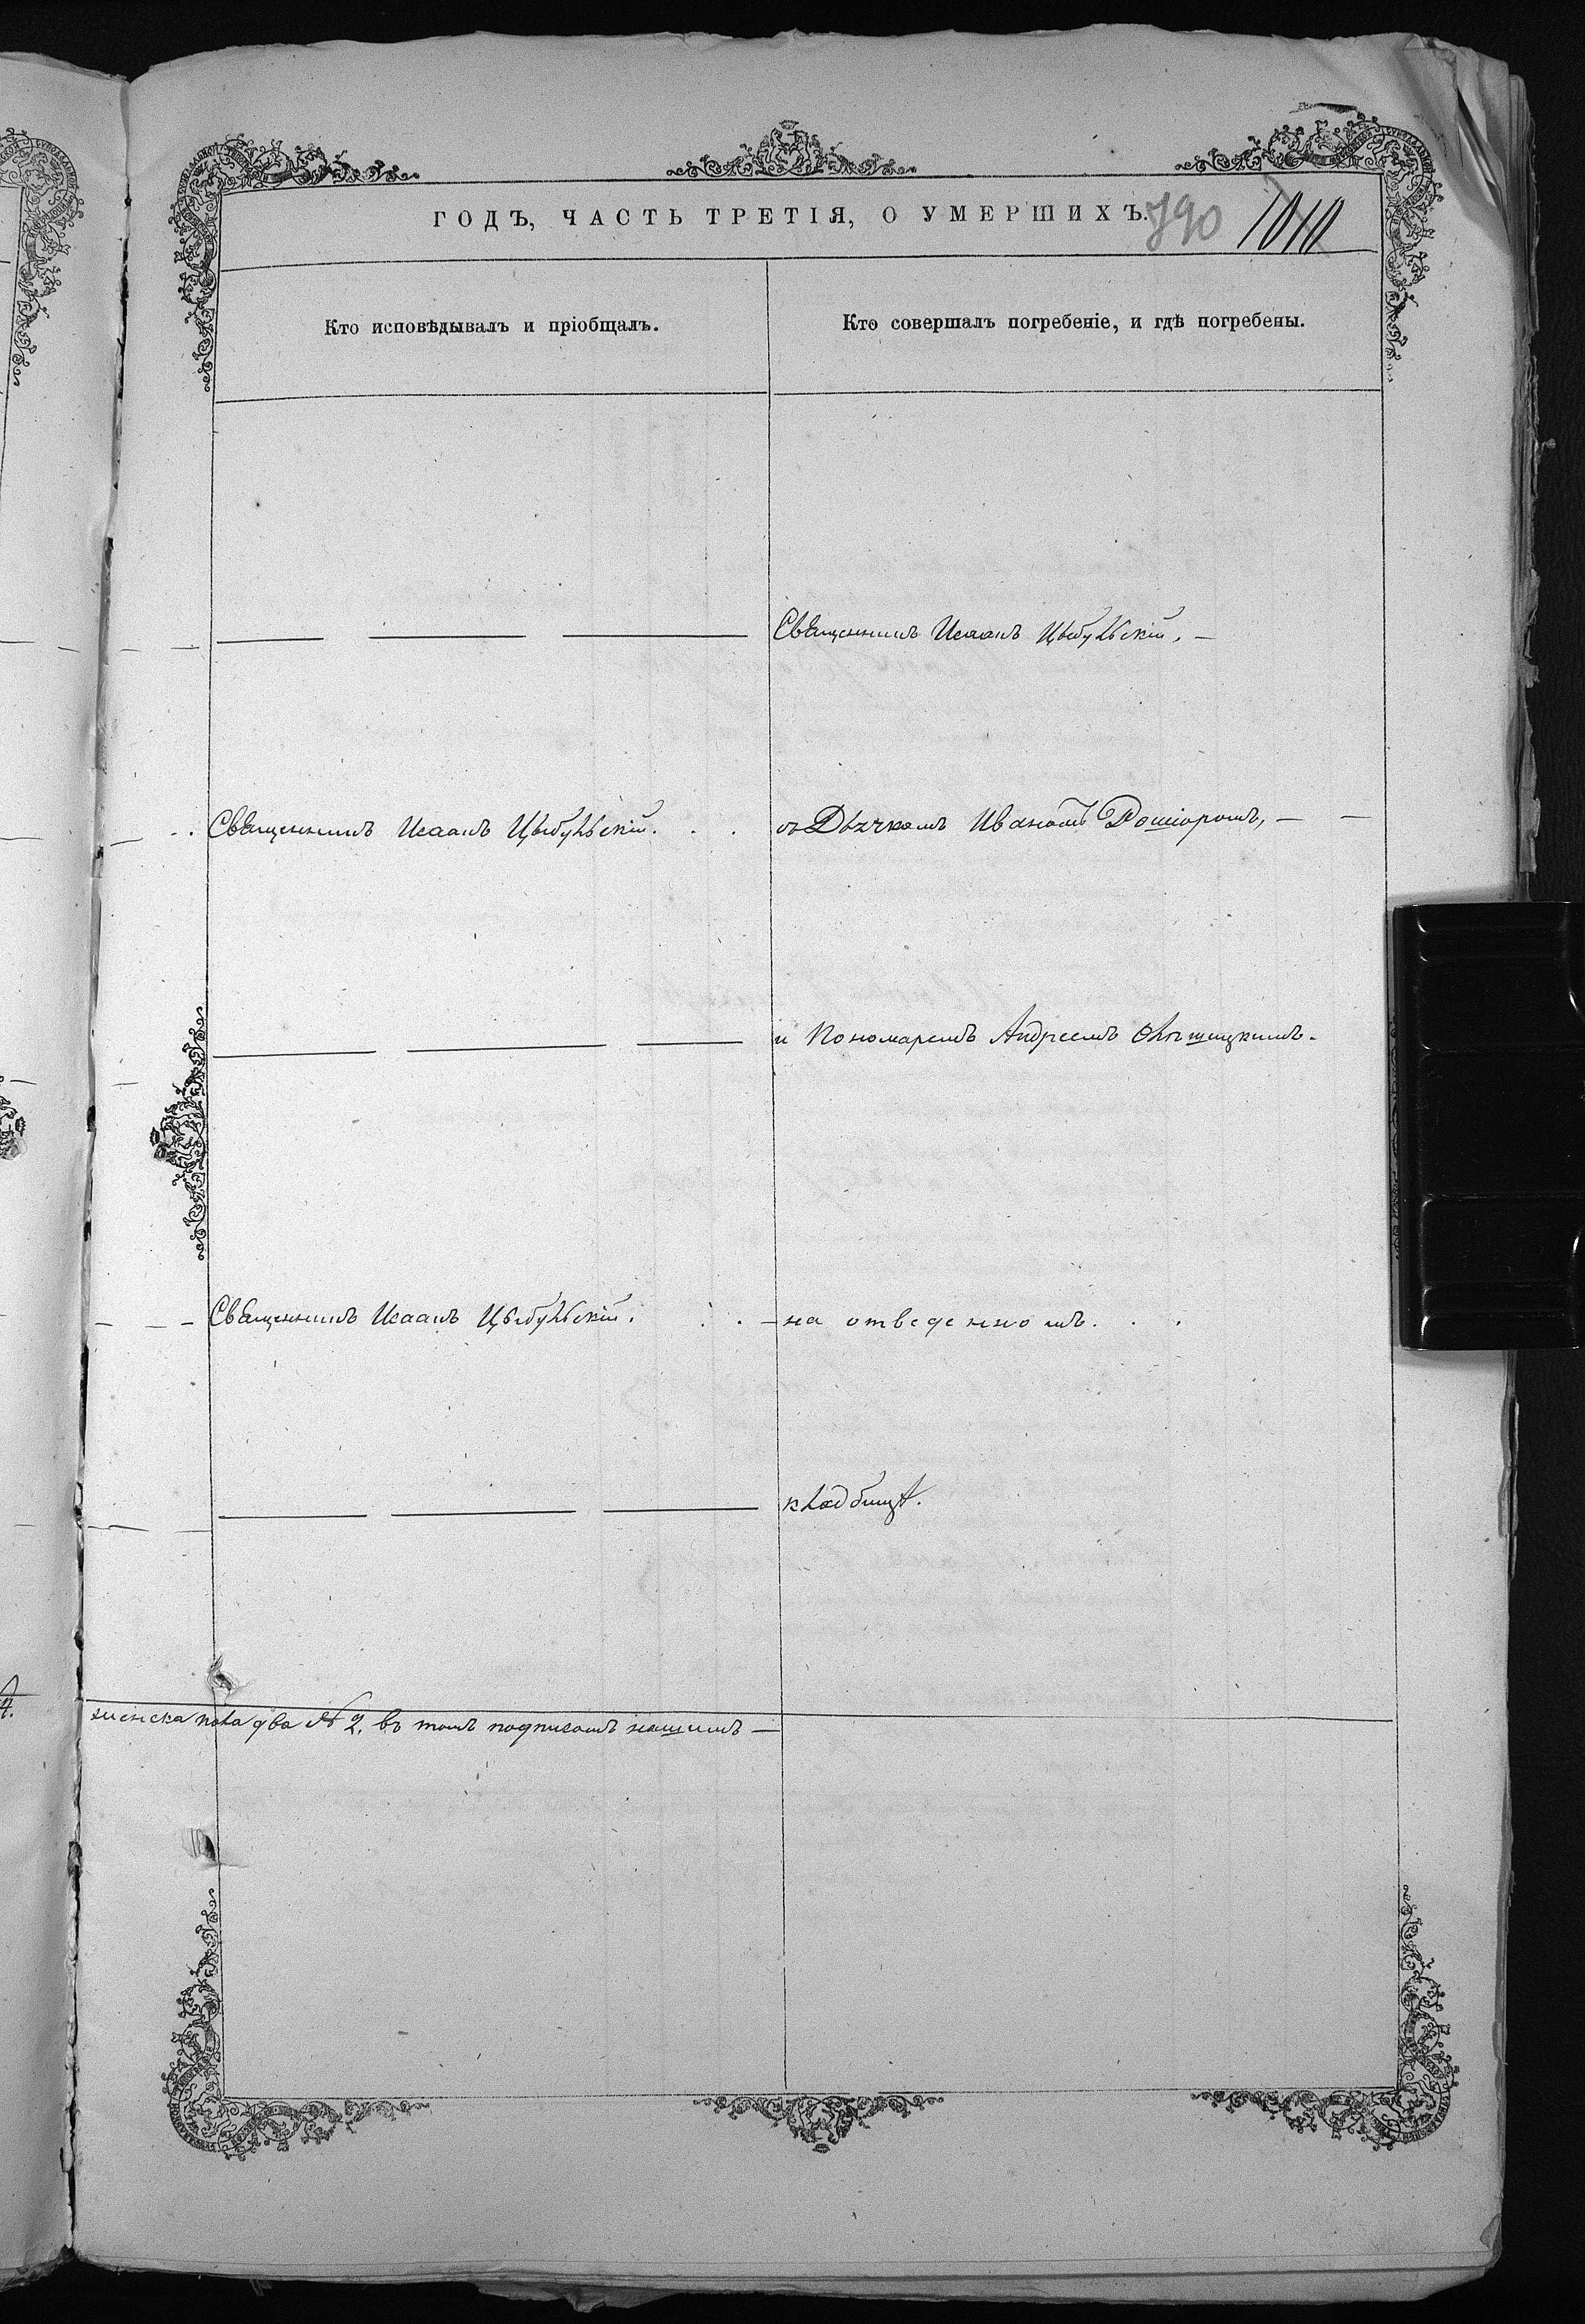 ГОДЪ, ЧАСТЬ ТРЕТІЯ, О УМЕРШИХЪ.
790 1010
Кто исповѣдывалъ и пріобщалъ.
Кто совершалъ погребеніе, и гдѣ погребены.
Священникъ Исаакъ Цыбульскій. —
Священникъ Исаакъ Цыбульскій. . .
съ Дьячкомъ Иваномъ Рошіоромъ, — —
и Пономаремъ Андреемъ
Священникъ Исаакъ Цыбульскій. . . —
на отведенномъ. . .
кладбищѣ.
женска пола два № 2, въ томъ подписомъ нашимъ —